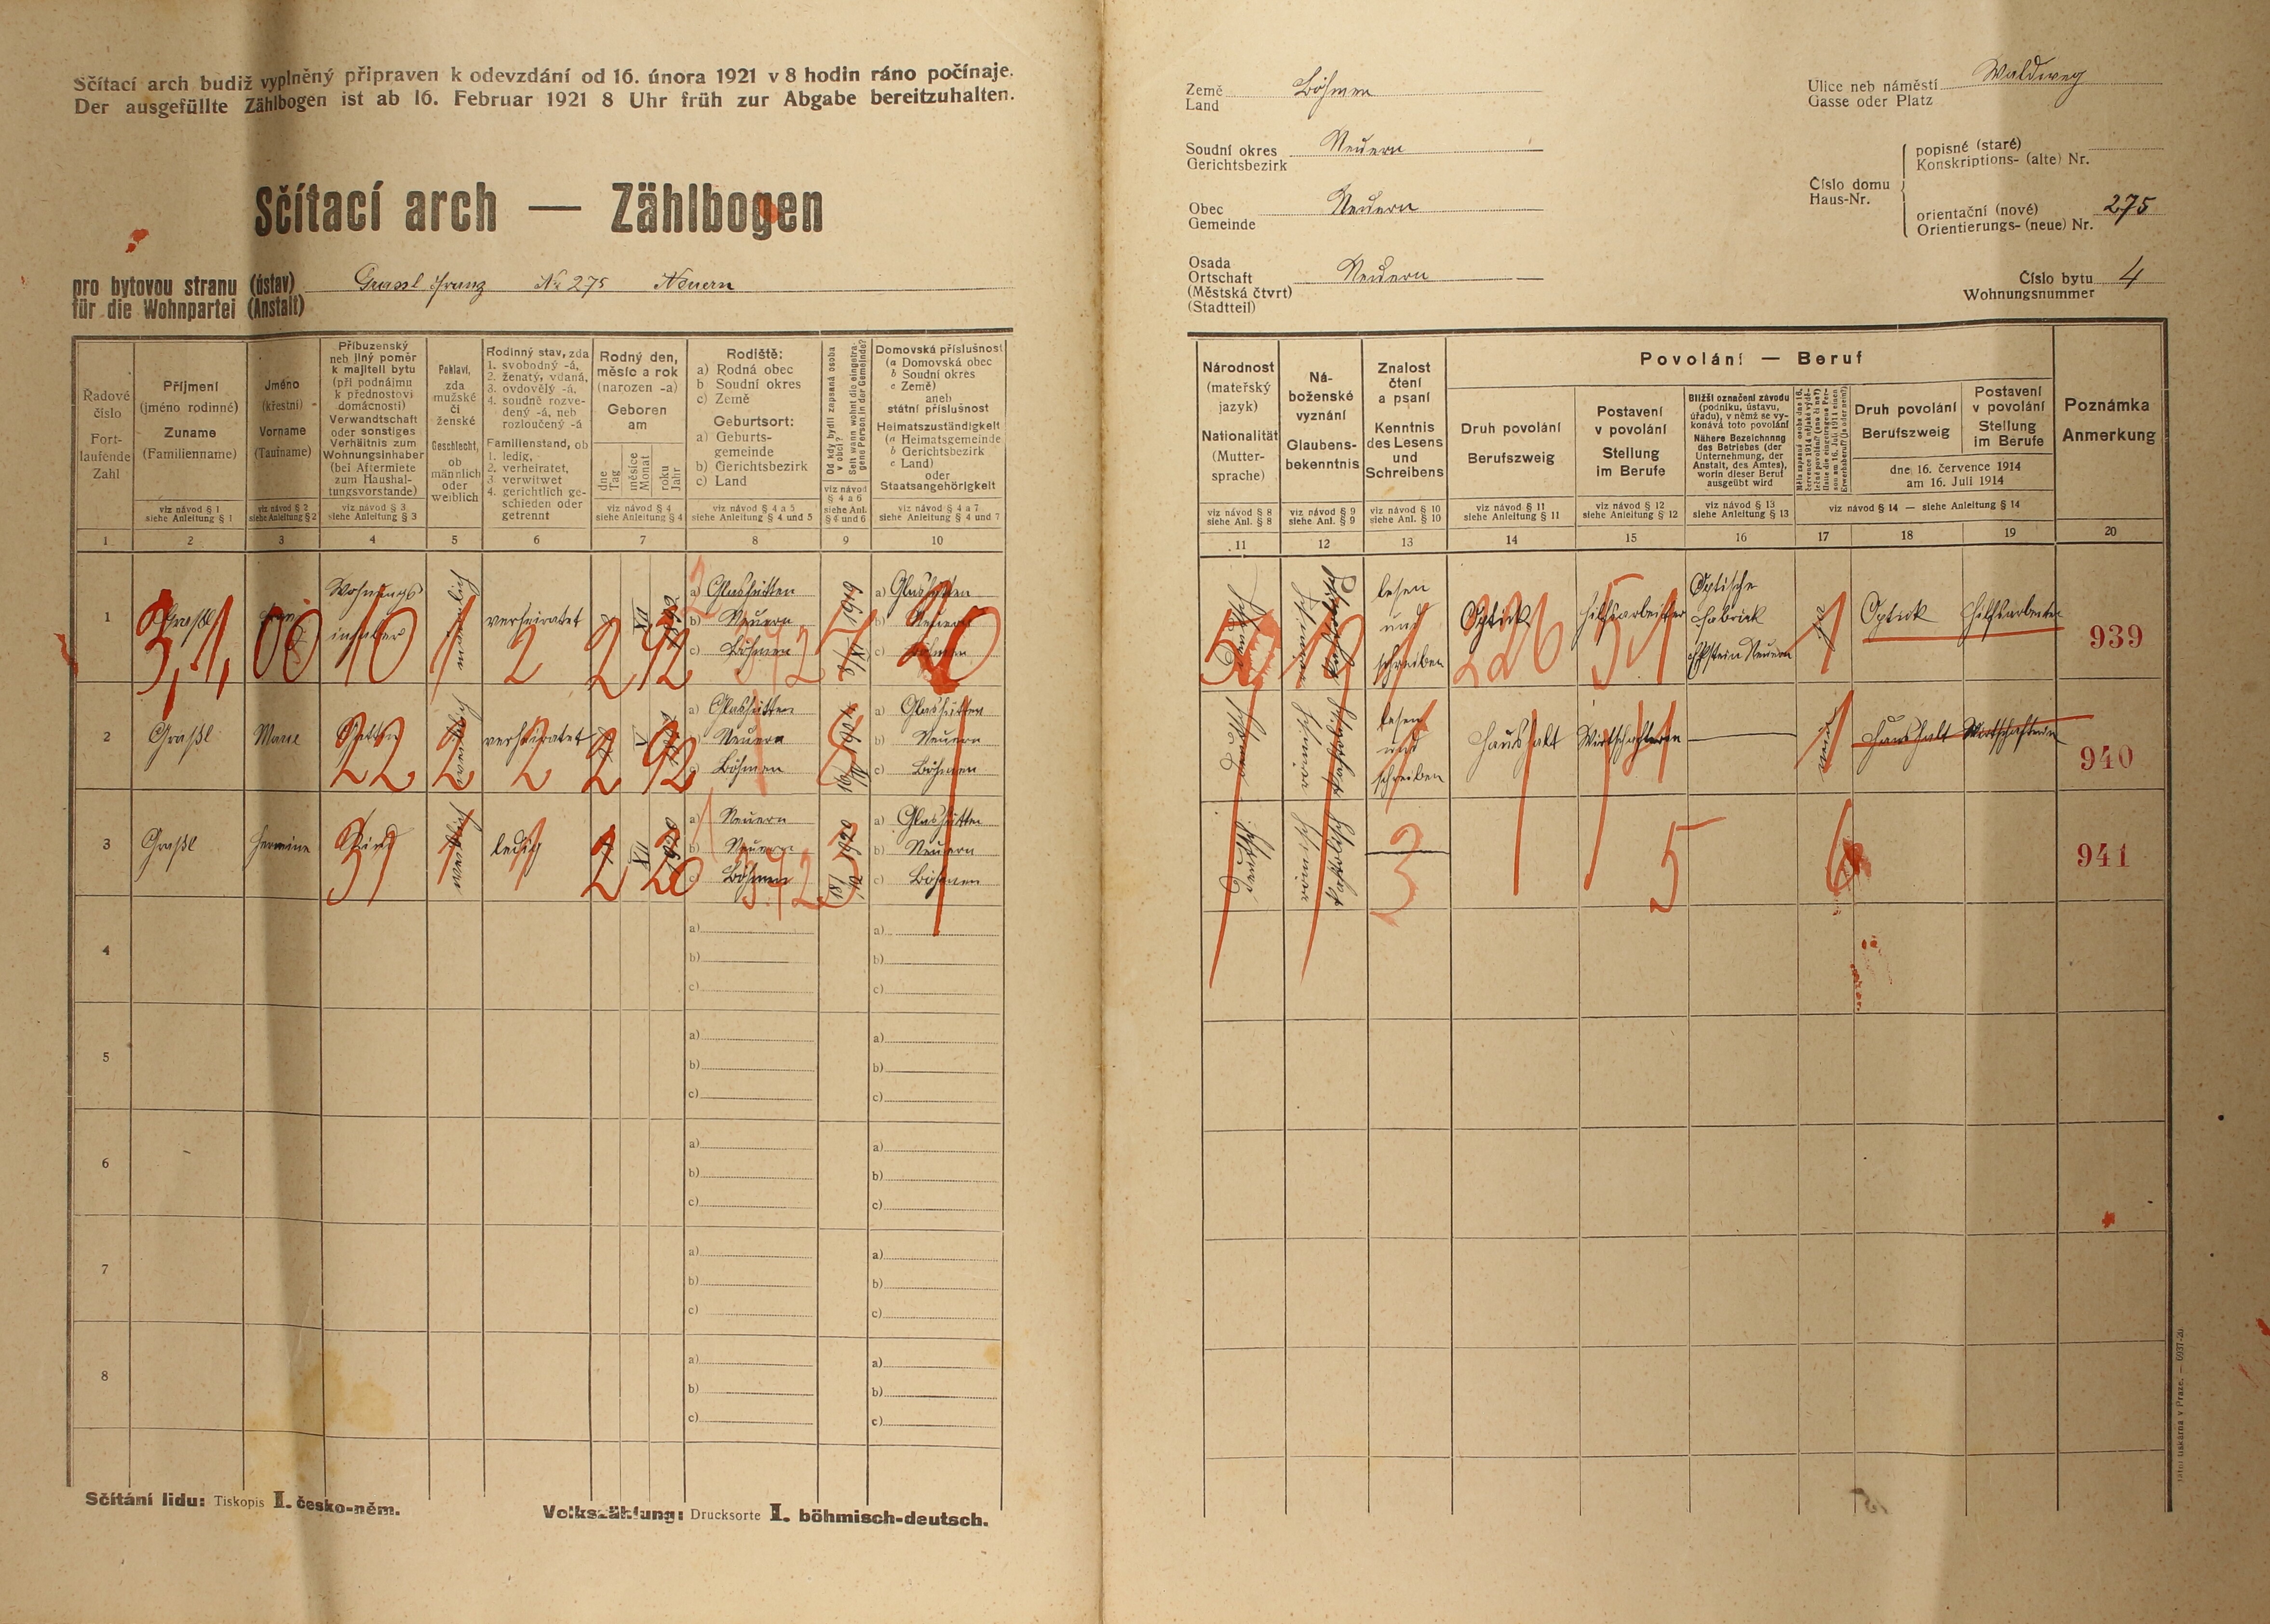 Sčítací arch budiž vyplněný připraven k odevzdání od 16. února 1921 v 8 hodin ráno počínaje.
Der ausgefüllte Zählbogen ist ab 16. Februar 1921 8 Uhr früh zur Abgabe bereitzuhalten.
Sčítací arch — Zählbogen
pro bytovou stranu (ústav)
für die Wohnpartei (Anstalt)
Grassl Franz No 275 Neuern
Řadové číslo
Fortlaufende Zahl
Příjmení
(jméno rodinné)
Zuname
(Familienname)
viz návod § 1
siehe Anleitung § 1
Jméno
(křestní)
Vorname
(Taufname)
viz návod § 2
siehe Anleitung § 2
Příbuzenský
neb jiný poměr
k majiteli bytu
(při podnájmu
k přednostovi
domácnosti)
Verwandtschaft
oder sonstiges
Verhältnis zum
Wohnungsinhaber
(bei Aftermiete
zum Haushaltungsvorstande)
viz návod § 3
siehe Anleitung § 3
Pohlaví,
zda
mužské
či
ženské
Geschlecht,
ob
männlich
oder
weiblich
Rodinný stav, zda
1. svobodný -á,
2. ženatý, vdaná,
3. ovdovělý -á,
4. soudně rozvedený -á, neb
rozloučený -á
Familienstand, ob
1. ledig,
2. verheiratet,
3. verwitwet
4. gerichtlich geschieden oder
getrennt
Rodný den,
měsíc a rok
(narozen -a)
Geboren
am
dne Tag
měsíce Monat
roku Jahr
viz návod § 4
siehe Anleitung § 4
Rodiště:
a) Rodná obec
b Soudní okres
c) Země
Geburtsort:
a) Geburtsgemeinde
b) Gerichtsbezirk
c) Land
viz návod § 4 a 5
siehe Anleitung § 4 und 5
Od kdy bydlí zapsaná osoba v obci?
Seit wann wohnt die eingetragene Person in der Gemeinde?
viz návod
§ 4 a 6
siehe Anl.
§ 4 und 6
Domovská příslušnost
(a Domovská obec
b Soudní okres
c Země)
aneb
státní příslušnost
Heimatszuständigkeit
(a Heimatsgemeinde
b Gerichtsbezirk
c Land)
oder
Staatsangehörigkeit
viz návod § 4 a 7
siehe Anleitung § 4 und 7
1 2 3 4 5 6 7 8 9 10
1 Graßl Wohnungsinhaber männlich verheiratet XII
a) Glashütten
b) Neuern
c) Böhmen
1919
a) Glashütten
b) Neuern
c) Böhmen
2 Graßl Marie Gattin weiblich verheiratet X
a) Glashütten
b) Neuern
c) Böhmen
a) Glashütten
b) Neuern
c) Böhmen
3 Graßl Hermine Kind weiblich ledig XII
a) Neuern
b) Neuern
c) Böhmen
1920
a) Glashütten
b) Neuern
c) Böhmen
4
a) a)
b) b)
c) c)
5
a) a)
b) b)
c) c)
6
a) a)
b) b)
c) c)
7
a) a)
b) b)
c) c)
8
a) a)
b) b)
c) c)
Sčítání lidu: Tiskopis I. česko-něm.
Volkszählung: Drucksorte I. böhmisch-deutsch.
Země
Land
Böhmen
Soudní okres
Gerichtsbezirk
Neuern
Obec
Gemeinde
Neuern
Osada
Ortschaft
(Městská čtvrť)
(Stadtteil)
Neuern
Ulice neb náměstí
Gasse oder Platz
Waldweg
Číslo domu
Haus-Nr.
popisné (staré)
Konskriptions- (alte) Nr.
orientační (nové)
Orientierungs- (neue) Nr.
275
Číslo bytu
Wohnungsnummer
4
Národnost
(mateřský
jazyk)
Nationalität
(Muttersprache)
viz návod § 8
siehe Anl. § 8
Náboženské
vyznání
Glaubensbekenntnis
viz návod § 9
siehe Anl. § 9
Znalost
čtení
a psaní
Kenntnis
des Lesens
und
Schreibens
viz návod § 10
siehe Anl. § 10
Povolání — Beruf
Druh povolání
Berufszweig
viz návod § 11
siehe Anleitung § 11
Postavení
v povolání
Stellung
im Berufe
viz návod § 12
siehe Anleitung § 12
Bližší označení závodu
(podniku, ústavu,
úřadu), v němž se vykonává toto povolání
Nähere Bezeichnung
des Betriebes (der
Unternehmung, der
Anstalt, des Amtes),
worin dieser Beruf
ausgeübt wird
viz návod § 13
siehe Anleitung § 13
Druh povolání
Berufszweig
Postavení
v povolání
Stellung
im Berufe
dne 16. července 1914
am 16. Juli 1914
viz návod § 14 — siehe Anleitung § 14
Poznámka
Anmerkung
11 12 13 14 15 16 17 18 19 20
deutsch
lesen
und
schreiben
Optik Hilfsarbeiter
Optische
Fabrick
Neuern
ja
Optik Hilfsarbeiter
939
deutsch
lesen
und
schreiben
Haushalt
nein
Haushalt
940
deutsch
941